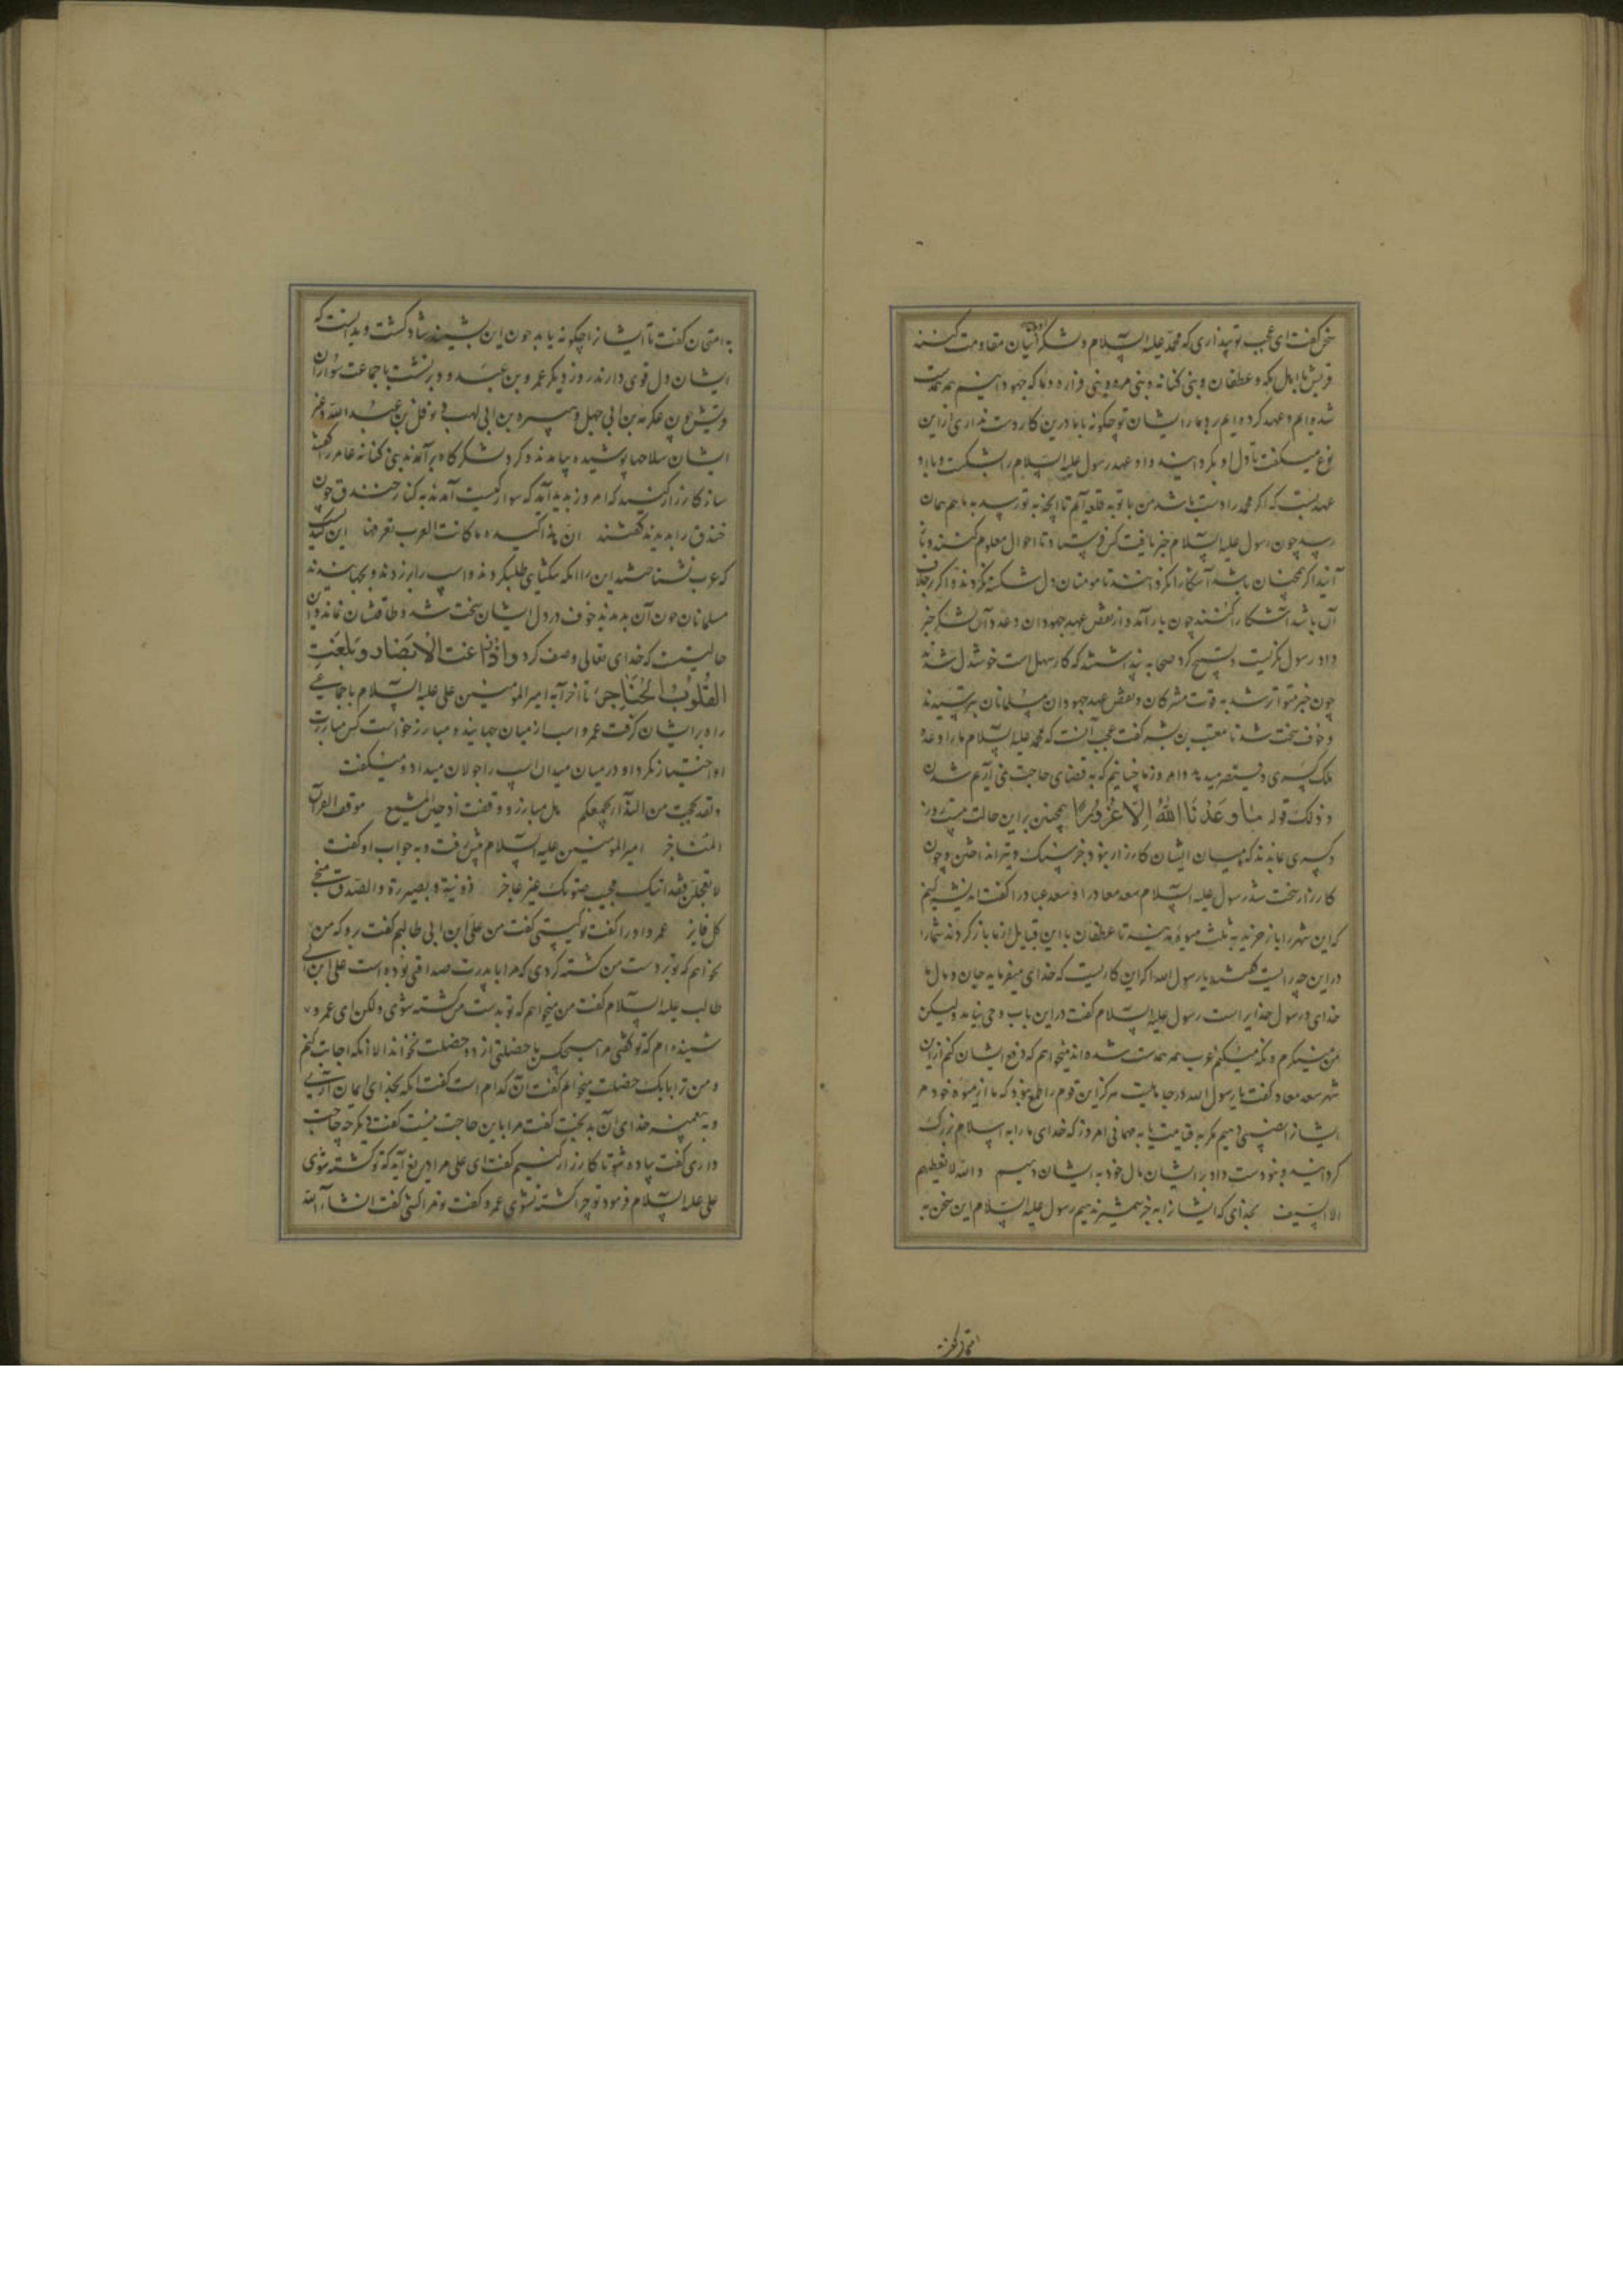 سخن گفت ای عجب تو پنداری که محمد علیه السلام و لشکر او با ایشان مقاومت کنند
قریش با اهل مکه و غطفان و بنی کنانه و بنی مره و بنی فزاره و ما که جهودانیم همه یکدست
شده‌ایم و عهد کرده‌ایم بر دمار ایشان تو چگونه با ما درین کار دست نداری ازین
نوع میگفت تا دل او بگردانید و او عهد رسول علیه السلام را بشکست و با او
عهد بست که اگر محمد را دست باشد من با تو به قلعه آیم تا آنچه به تو رسد به ما هم همان
رسد چون رسول علیه السلام خبر یافت کس فرستاد تا احوال معلوم کنند و باز
آیند اگر همچنان باشد آشکارا نکردانند تا مؤمنان دل شکسته نگردند و اگر بخلاف
آن باشد آشکارا کنند چون باز آمد و از نقض عهد جهودان و عدد آن لشکر خبر
داد رسول نگریست و تسبیح کرد صحابه پنداشتند که کار سهل است خوشدل شدند
چون خبر متواتر شد به قوت مشرکان و نقض عهد جهودان مسلمانان بترسیدند
و خوف سخت شد تا معتب بن بشیر گفت عجب آنست که محمد علیه السلام ما را وعده
ملک کسری و قیصر میدهد و امروز ما چنانیم که به قضای حاجت نمی‌آریم شدن
و ذلک قوله ما وعدنا الله الا غرورا همچنین براین حالت بیست روز
و کسری ماندند که میان ایشان کارزار نبود بجز سنگ و تیر انداختن و چون
کارزار سخت شد رسول علیه السلام سعد معاذ را و سعد عباده را گفت اندیشه کنم
که این شهر را باز خرند به ثلث میوه مدینه تا غطفان با این قبایل از ما باز گردند شما را
در این چه رایست گفتند یا رسول الله اگر این کاریست که خدای میفرماید جان و مال ما
خدای و رسول خدایراست رسول علیه السلام گفت در این باب وحی نیامد ولیکن
من مینگرم و نگه میکنم عرب همه یکدست شده‌اند میخواهم که دفع ایشان کنم ازین
شهر سعد معاذ گفت یا رسول الله در جاهلیت هرگز این قوم را طمع نبود که ما از میوه خود مر
ایشانرا نصیبی دهیم مگر به قیامت یا به مهمانی امروز که خدای ما را به اسلام بزرگ
گردانید و بتو دست داد بر ایشان مال خود به ایشان دهیم والله لا نعطیهم
الا السیف بخدای که ایشانرا به جز شمشیر ندهیم رسول علیه السلام این سخن به
امتحان گفت
به امتحان گفت تا ایشانرا چگونه یابد چون این بشنید شاد گشت و بدانست که
ایشان دل قوی دارند روز دیگر عمرو بن عبد ود برنشست با جماعت سواران
قریش چون عکرمه بن ابی جهل و هبیره بن ابی لهب و نوفل بن عبد الله و غیر
ایشان سلاحها پوشیده بیامدند و گرد لشکرگاه برآمدند بنی کنانه عامر را گفتند
ساز کارزار کنید که امروز پدید آید که سوار کیست آمدند به کنار خندق چون
خندق را بدیدند گفتند ان هذه لکیده ما کانت العرب تعرفها این کیدیست
که عرب نشناختند این را آنگه تنگنای طلب کردند و اسپ را بر زدند و بجهانیدند
مسلمانان چون آن بدیدند خوف در دل ایشان سخت شد و طاقتشان نماند و این
حالیست که خدای تعالی وصف کرد واذ زاغت الابصار و بلغت
القلوب الحناجر تا آخر آیه امیر المؤمنین علی علیه السلام با جماعتی
راه بر ایشان گرفت عمرو اسب از میان جهانید و مبارز خواست کس مبارزت
او اختیار نکرد او در میان میدان اسپ را جولان میداد و میگفت
ولقد بححت من الندآء بجمعکم هل مبارز و وقفت اذ جبن المشجع موقف القرآن
المناجز امیر المؤمنین علیه السلام پیش رفت و به جواب او گفت
لا تعجلن فقد اتیک مجیب صوتک غیر عاجز ذو نیة و بصیرة والصدق منجی
کل فایز عمرو او را گفت تو کیستی گفت من علی ابن ابی طالبم گفت برو که من
نخواهم که تو بر دست من کشته گردی که مرا با پدرت صداقتی بوده است علی ابن ابی
طالب علیه السلام گفت من میخواهم که تو بدست من کشته شوی ولکن ای عمرو
شنیده‌ام که تو گفتی مرا هیچکس با خصلتی از دو خصلت نخواند الا آنکه اجابت کنم
و من ترا با یک خصلت میخوانم گفت آن کدام است گفت آنکه بخدای ایمان آری
و به پیغمبر خدای آن بدبخت گفت مرا باین حاجت نیست گفت دیگر چه حاجت
داری گفت پیاده شو تا کارزار کنیم گفت ای علی مرا دریغ آید که تو کشته شوی
علی علیه السلام فرمود تو چرا کشته نشوی عمرو گفت تو مرا کشی گفت انشاء الله